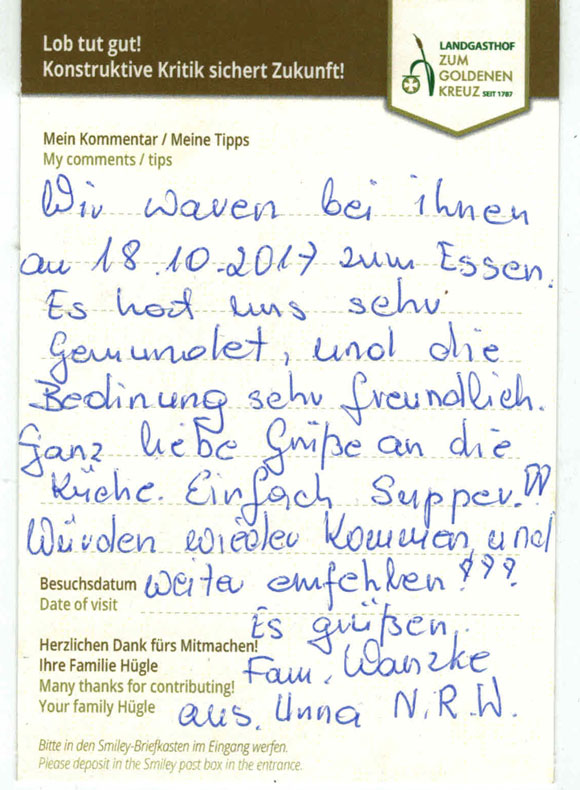 Lob tut gut!
Konstruktive Kritik sichert Zukunft!
LANDGASTHOF
ZUM
GOLDENEN
KREUZ SEIT 1787
Mein Kommentar / Meine Tipps
My comments / tips
Wir waren bei ihnen
au 18.10.2017 zum Essen.
Es hat uns sehr
Gemundet, und die
Bedinung sehr freundlich.
Ganz liebe Grüße an die
Küche. Einfach Supper.!!!
Würden wieder kommen, und
Besuchsdatum weiter emfehlen!!!
Date of visit
Es grüßen,
Herzlichen Dank fürs Mitmachen!
Ihre Familie Hügle Fam. Wanzke
Many thanks for contributing!
Your family Hügle aus. Unna N.R.W.
Bitte in den Smiley-Briefkasten im Eingang werfen.
Please deposit in the Smiley post box in the entrance.